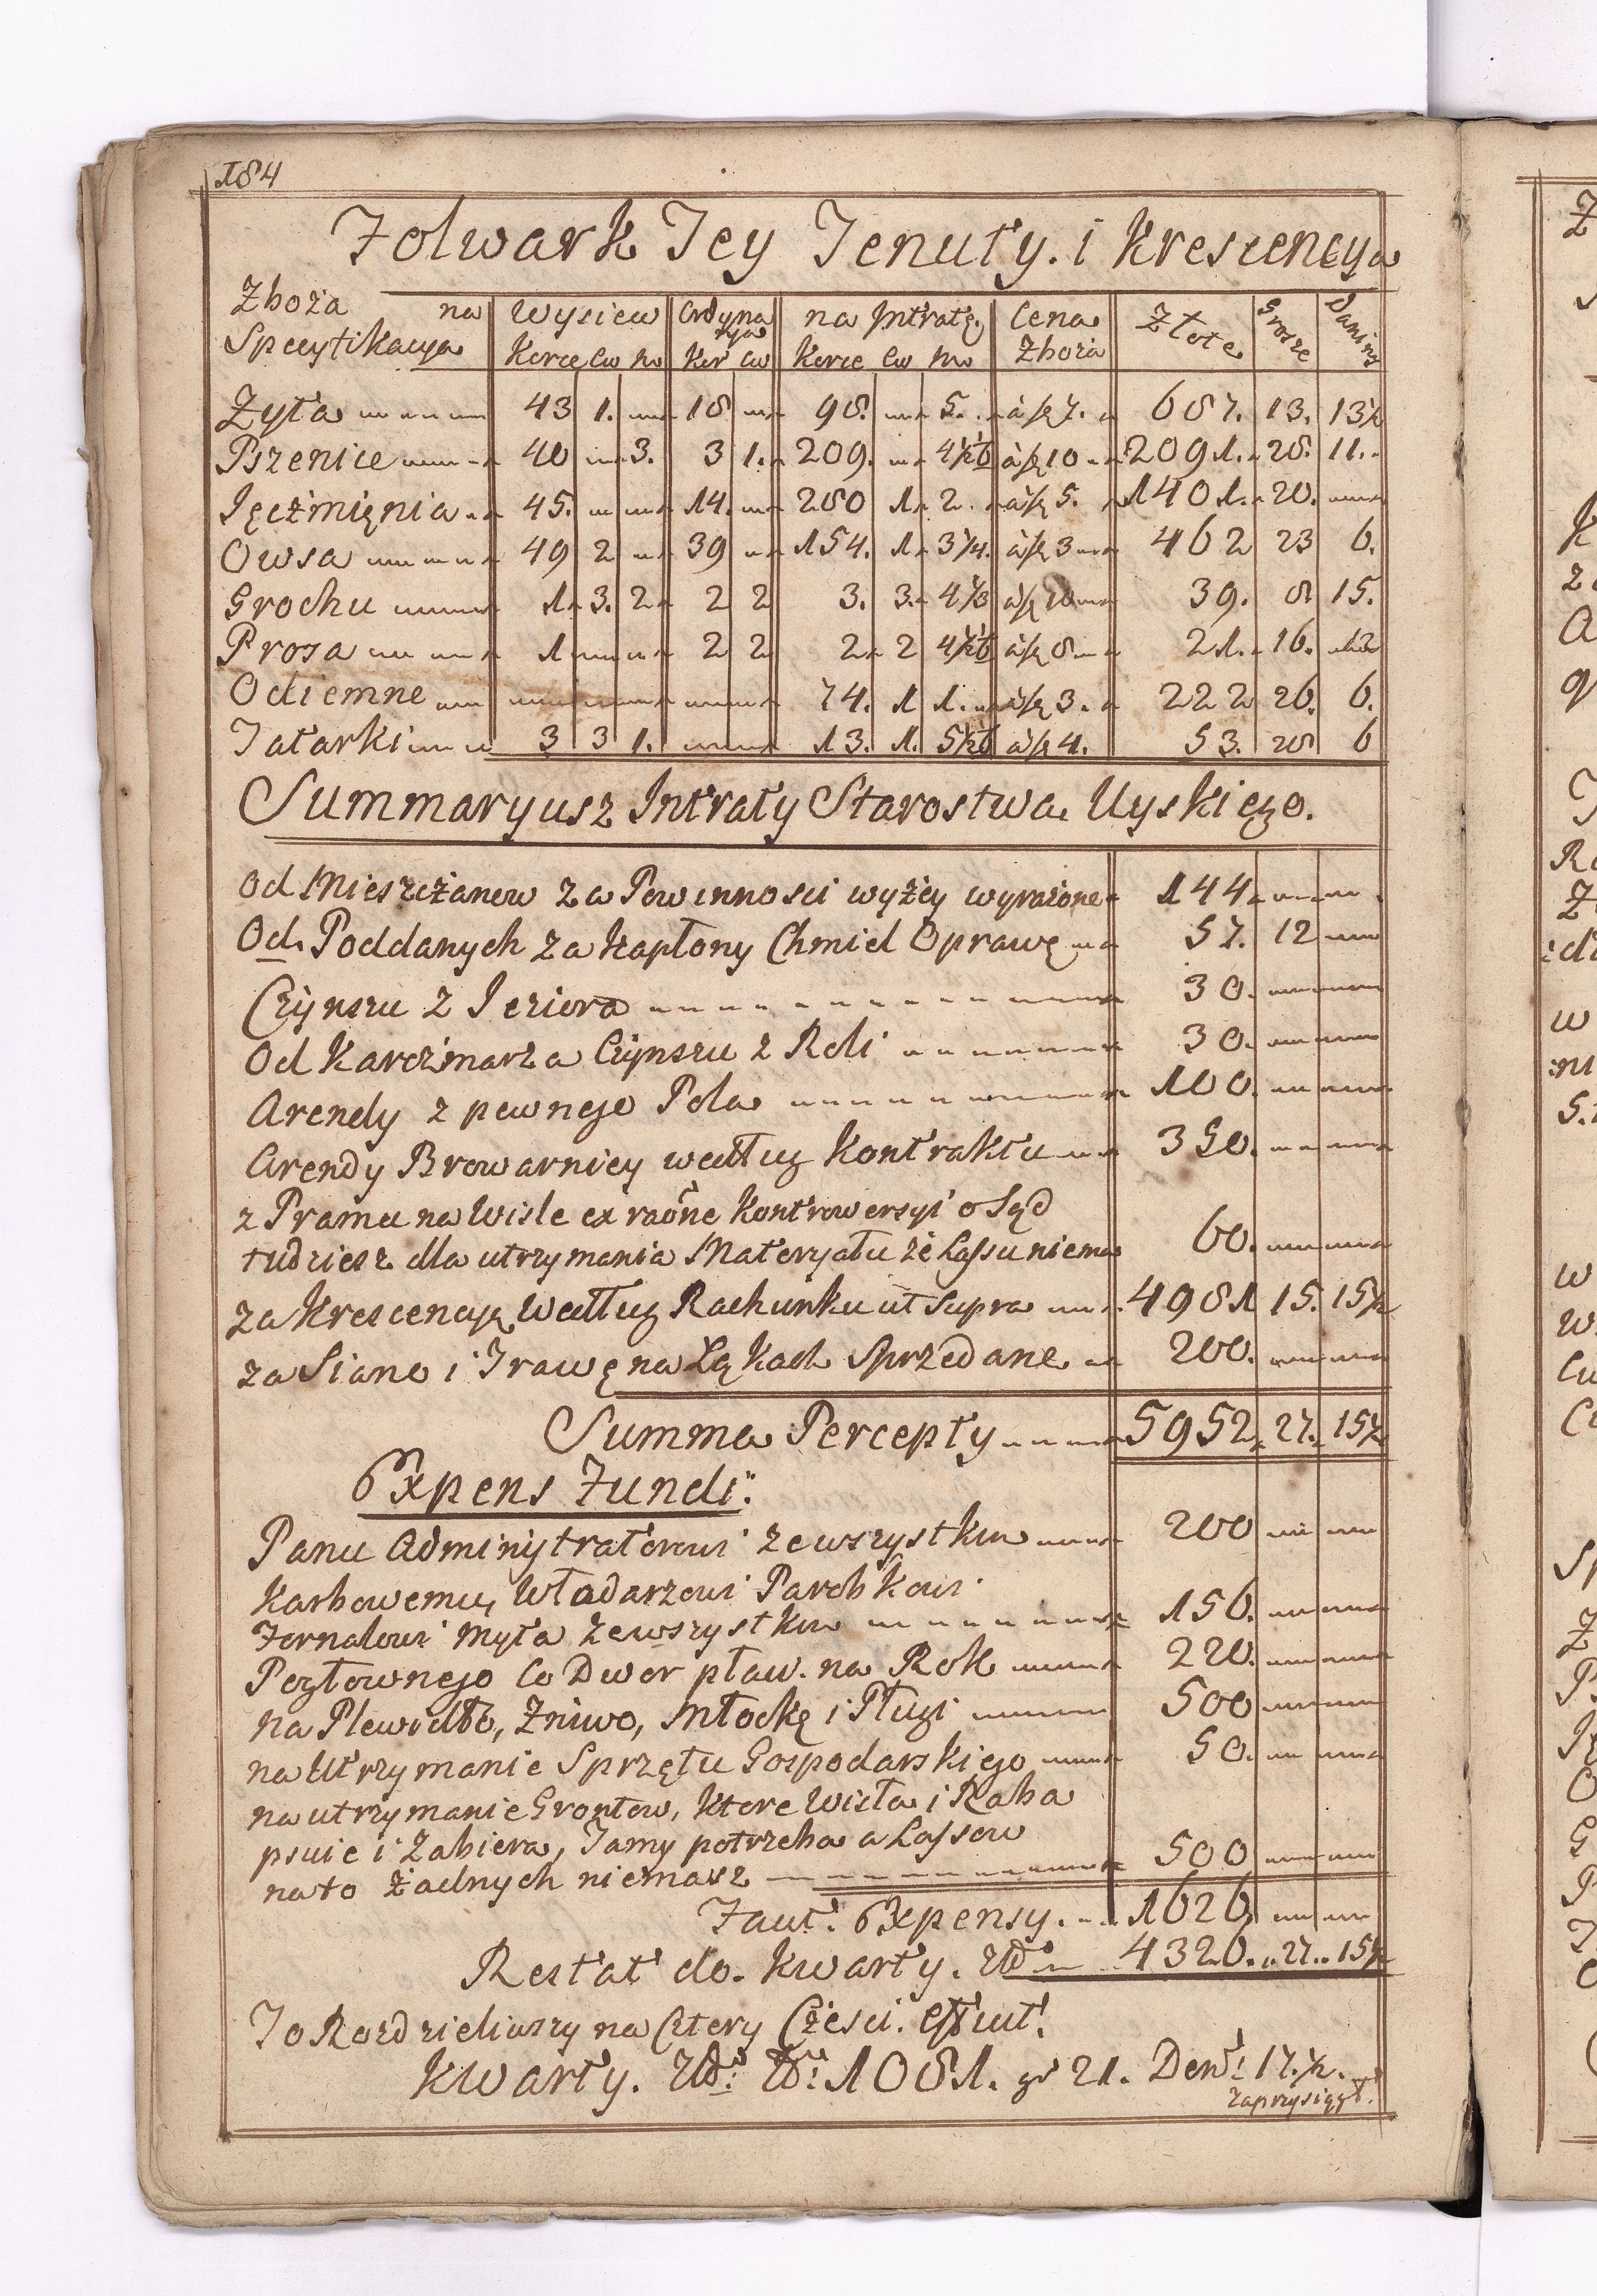 184
Folwark Tey Tenuty. i Krescencya
Zboża na Wysiew Ordyna na Intratę Cena Złote Grosze Denary
Specyfikacya Korce Ćw Mo rya Kor Ćw Korce Ćw Mo Zboża
Zyta 43 1. 18 98. 5. à fl 7. 687. 13. 13½
Pszenice 40 3. 3 1. 209. 4½ à fl 10 2091. 28. 11.
Jęczmięnia 45. 14. 280 1. 2. à fl 5. 1401. 20.
Owsa 49 2 39 154. 1. 3¼. à fl 3 462 23 6.
Grochu 1. 3. 2 2 2 3. 3. 4⅓ à fl 10 39. 8 15.
Prosa 1 2 2 2. 2 4½ à fl 8 21. 16. 12
Odiemne 74. 1 1. à fl 3. 222 26. 6.
Tatarki 3 3 1. 13. 1. 5½ à fl 4. 53. 28 6
Summaryusz Intraty Starostwa Uyskiego.
Od Mieszczanow za Powinnosci wyżey wyrażone 144.
Od Poddanych za Kapłony Chmiel Oprawę 57. 12
Czynszu z Jeziora 30.
Od Karczmarza Czynszu z Roli 30.
Arendy z pewnego Pola 100.
Arendy Browarniey według Kontraktu 350.
z Pramu na Wisle ex raõne Kontrowersyi o Sąd
tudziesz dla utrzymania Materyału że Lassu niema 60.
za Krescencyę według Rachunku ut Supra 4981 15. 15½
za Siano i Trawę na Łąkach Sprzedane 200.
Summa Percepty 5952. 27. 15½
Expens Fundi:
Panu Administratorowi ze wszystkim 200
Karbowemu, Włodarzowi Parobkowi
Fornalowi Myta ze wszystkim 156.
Pogłownego Co Dwor pław. na Rok 220.
na Plewidło, Zniwo, Młockę i Pługi 500
na Utrzymanie Sprzętu Gospodarskiego 50.
na utrzymanie Grontow, ktore Wisła i Raba
psuie i Zabiera, Tamy potrzeba a Lassow
na to żadnych niemasz 500
Faut. Expensy. 1626.
Restat do. Kwarty. 4326. 27. 15½
To Rozdzieliwszy na Cztery Części. effiut.
Kwarty. 1081. gr 21. Den: 17.½.
zaprzysiągł.